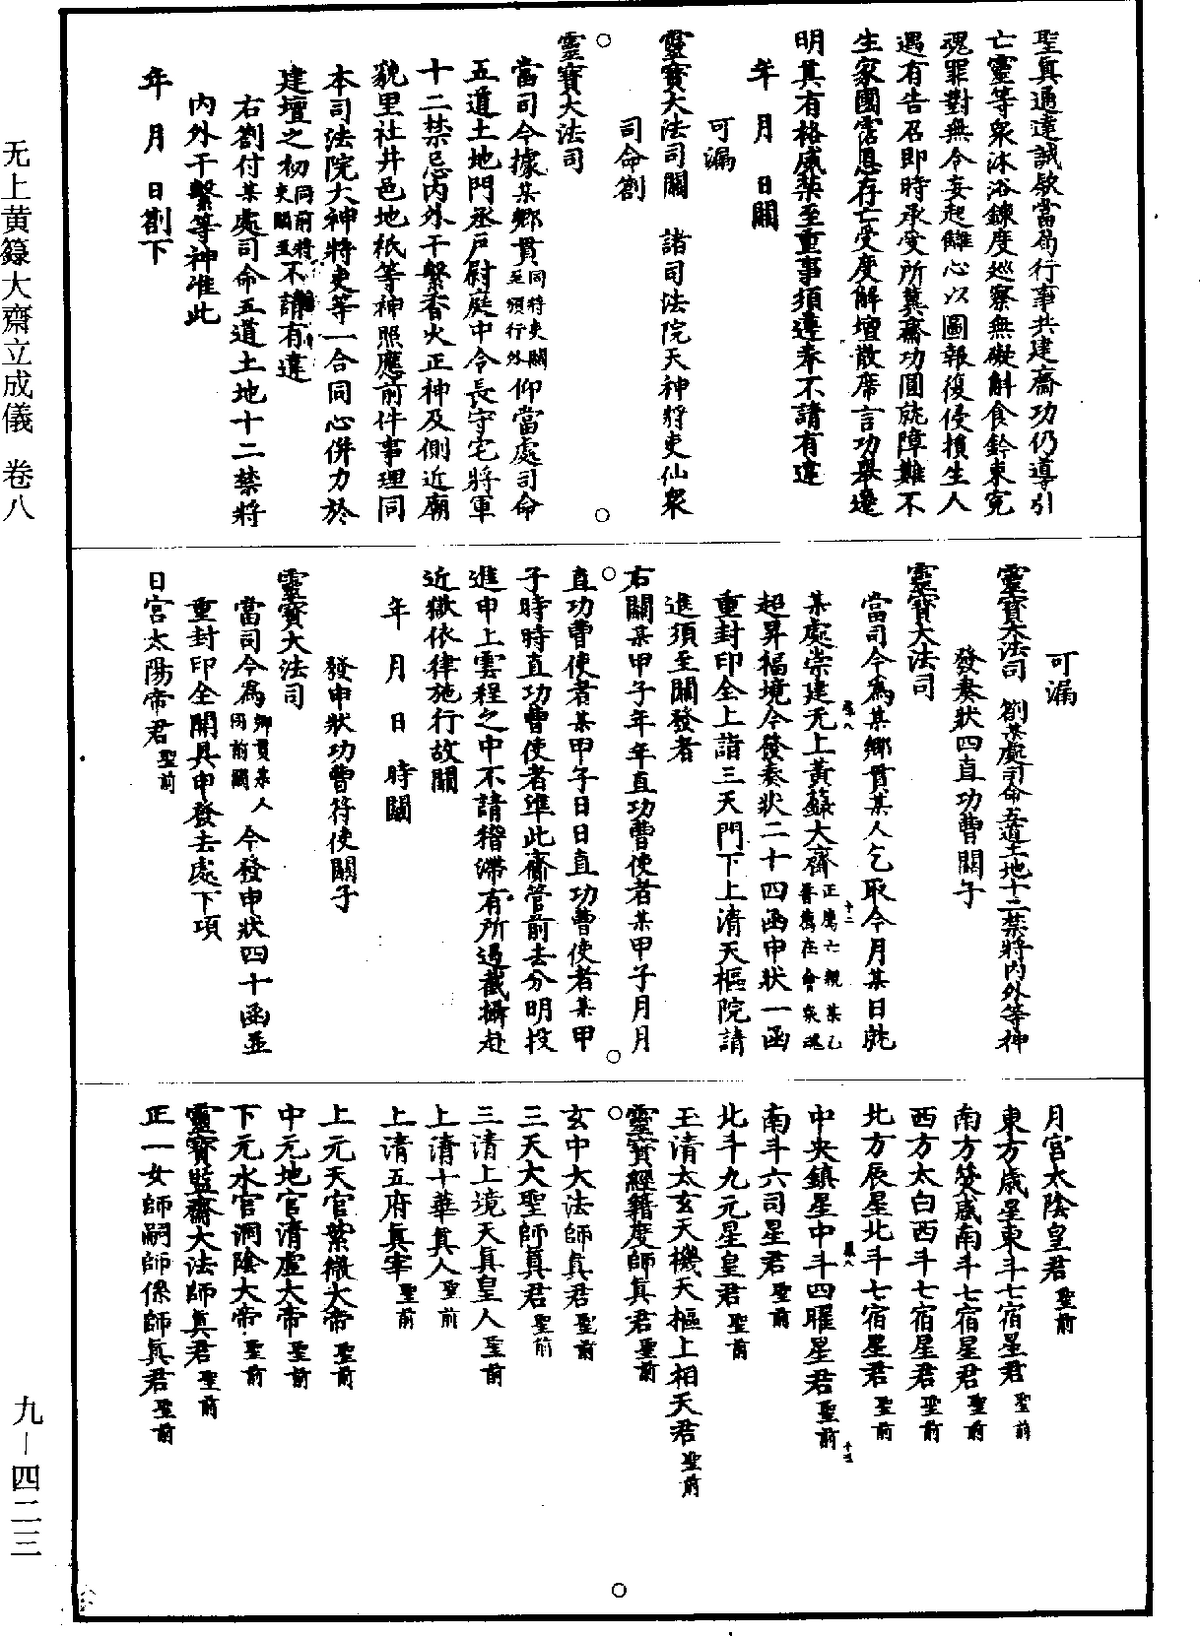 聖真通達誠欵當局行事共建齋功仍導引
亡靈等衆沐浴鍊度巡察無礙斛食鈐束冤
魂罪對無令妄起讎心以圖報復侵損生人
遇有告召即時承受所兾齋功圓就障難不
生家國霑恩存亡受度解壇散席言功舉遷
明其有格威禁至重事須遵奉不請有違
年 月 日關
可漏
靈寳大法司關 諸司法院天神將吏仙衆
司命劄
靈寳大法司
當司今據某鄉貫同將吏關至頒行外仰當處司命
五道土地門丞戸尉庭中令長守宅將軍
十二禁忌內外干繫香火正神及側近廟
貌里社井邑地祇等神照應前件事理同
本司法院大神將吏等一合同心併力於
建壇之初同前將吏關至不請有違
右劄付某處司命五道土地十二禁將
內外干繫等神准此
年 月 日劄下
可漏
靈寳大法司 劄某處司命五道土地十二禁將內外等神
發奏狀四直功曹關子
靈寳大法司
當司今為某鄉貫某人乞取今月某日就
某處崇建无上黃籙大齋正薦六親某乙普薦在會衆魂
超昇福境今發奏狀二十四函申狀一函
重封印全上詣三天門下上清天樞院請
進須至關發者
右關某甲子年年直功曹使者某甲子月月
直功曹使者某甲子日日直功曹使者某甲
子時時直功曹使者準此齋管前去分明投
進申上雲程之中不請稽滯有所過截攝赴
近獄依律施行故關
年 月 日 時關
發申狀功曹符使關子
靈寳大法司
當司今為鄉貫某人同前關今發申狀四十函並
重封印全開具申發去處下項
日宮太陽帝君聖前
月宮太陰皇君聖前
東方歲星東斗七宿星君聖前
南方熒惑南斗七宿星君聖前
西方太白西斗七宿星君聖前
北方辰星北斗七宿星君聖前
中央鎮星中斗四曜星君聖前
南斗六司星君聖前
北斗九元星皇君聖前
玉清太玄天機天樞上相天君聖前
靈寳經籍度師真君聖前
玄中大法師真君聖前
三天大聖師真君聖前
三清上境天真皇人聖前
上清十華真人聖前
上清五府真宰聖前
上元天官紫微大帝聖前
中元地官清虛大帝聖前
下元水官洞陰大帝聖前
靈寳監齋大法師真君聖前
正一女師嗣師係師真君聖前
无上黄籙大齋立成儀 卷八
九-四二三